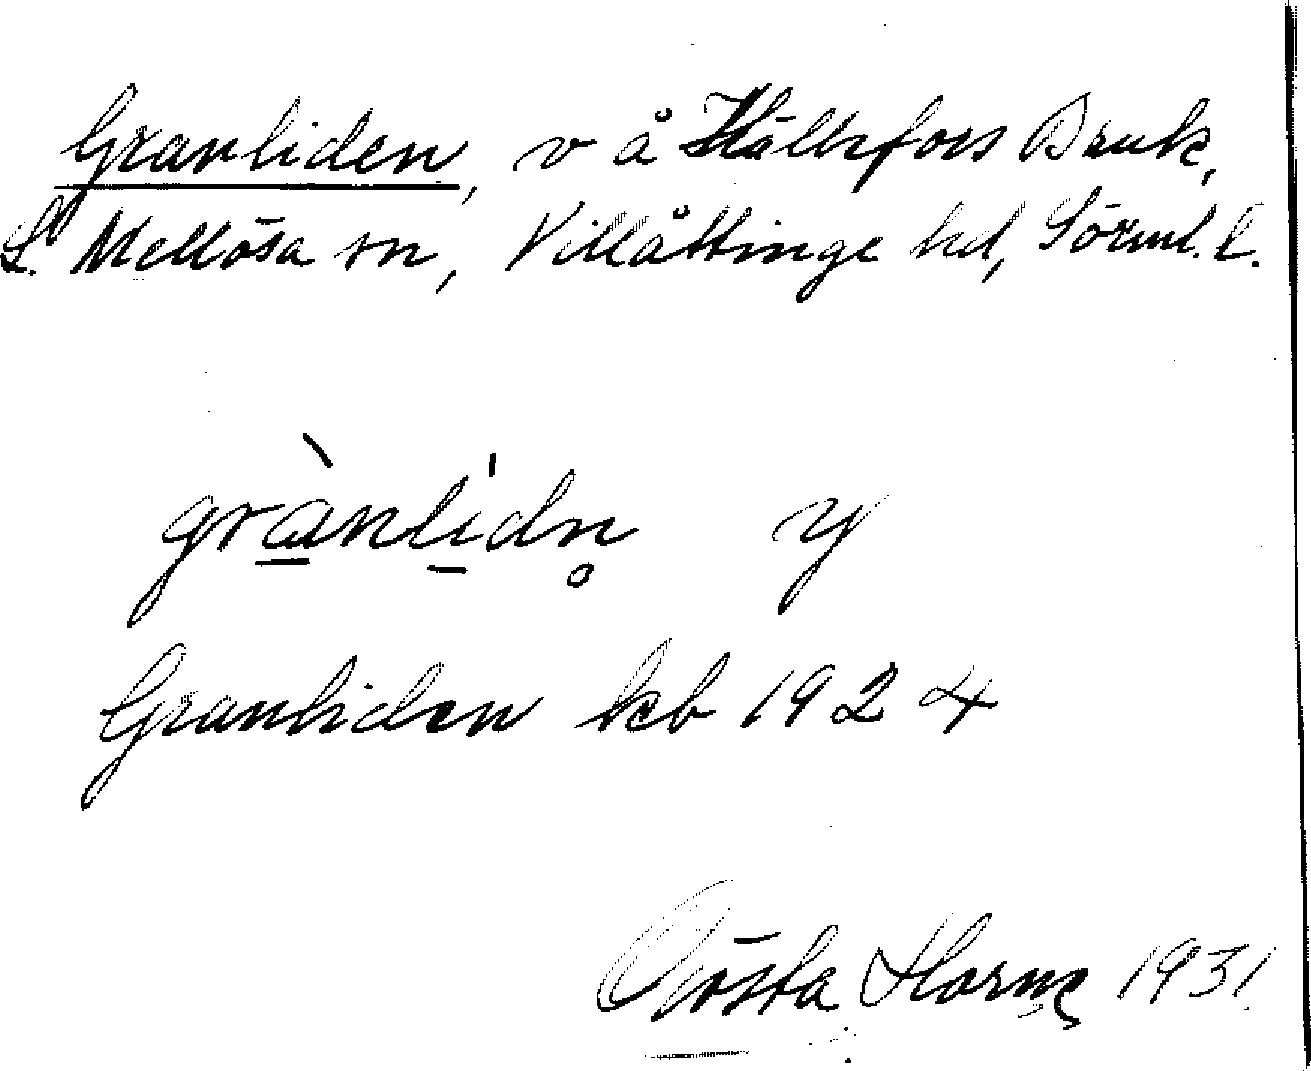 Granliden, v å Hälleforss Bruk,
L. Mellösa sn, Villåttinge hd, Sörml. l.
grànli̍dn̥ y
Granliden kb 1924
Gösta Horne 1931